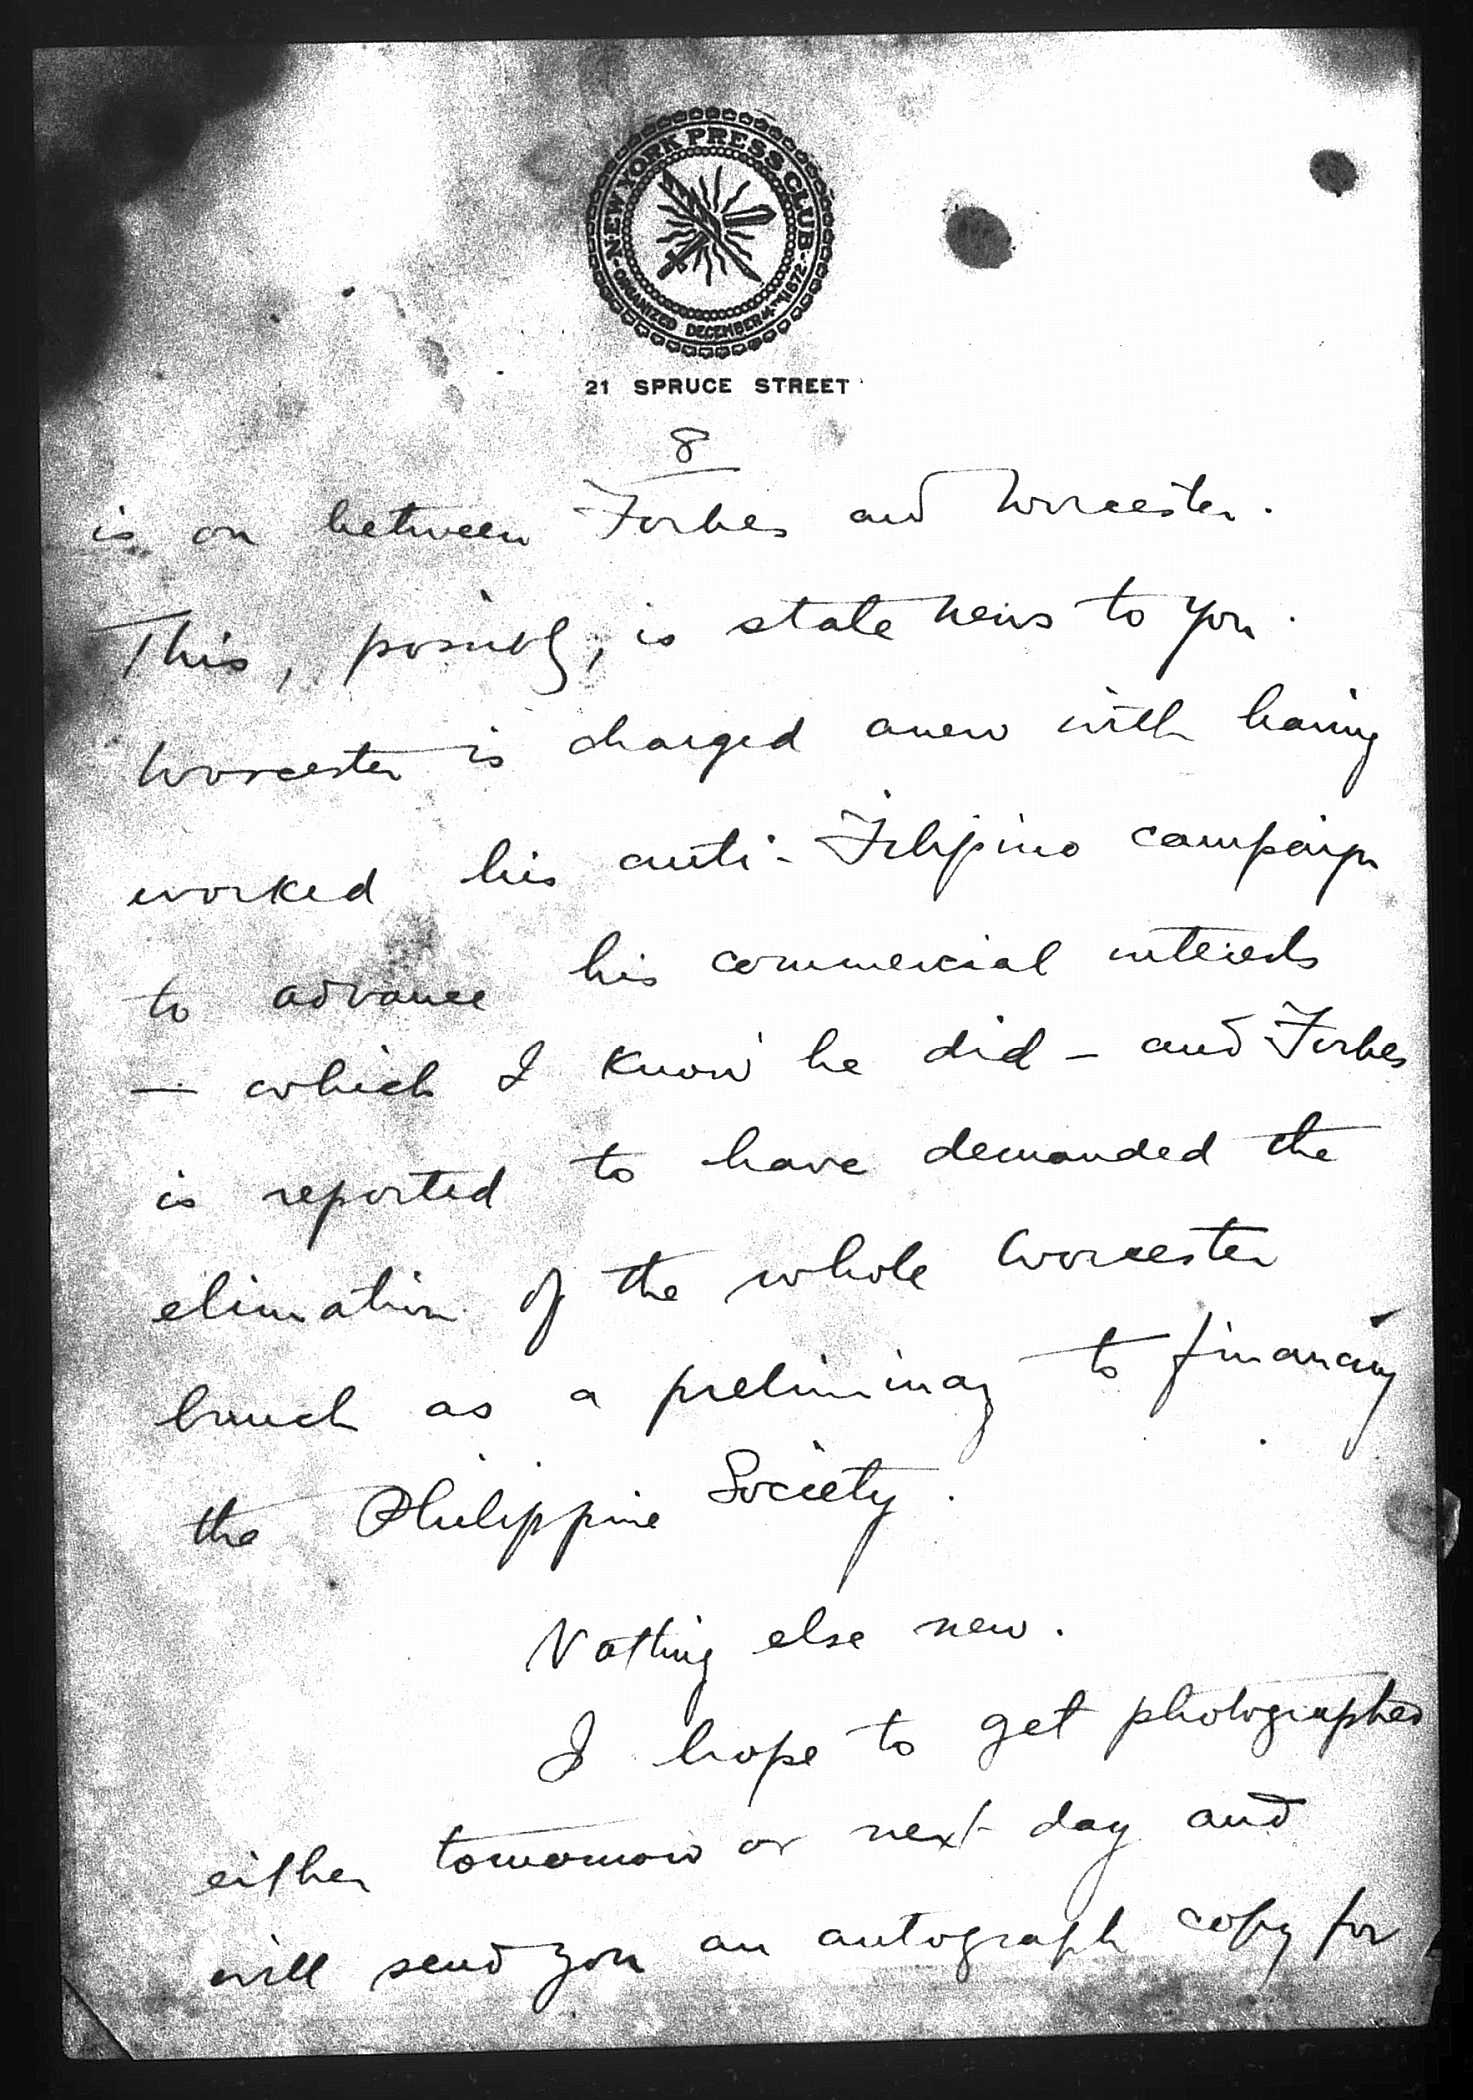 NEW YORK PRESS CLUB
ORGANIZED DECEMBER 4TH, 1872
21 SPRUCE STREET
8
is on between Forbes and Worcester.
This, possibly, is stale news to you.
Worcester is charged anew with having
worked his anti-Filipino campaign
to advance his commercial interests
— which I know he did — and Forbes
is reported to have demanded the
elimation of the whole Worcester
bunch as a preliminary to financing
the Philippine Society.
Nothing else new.
I hope to get photographed
either tomorrow or next day and
will send you an autograph copy for